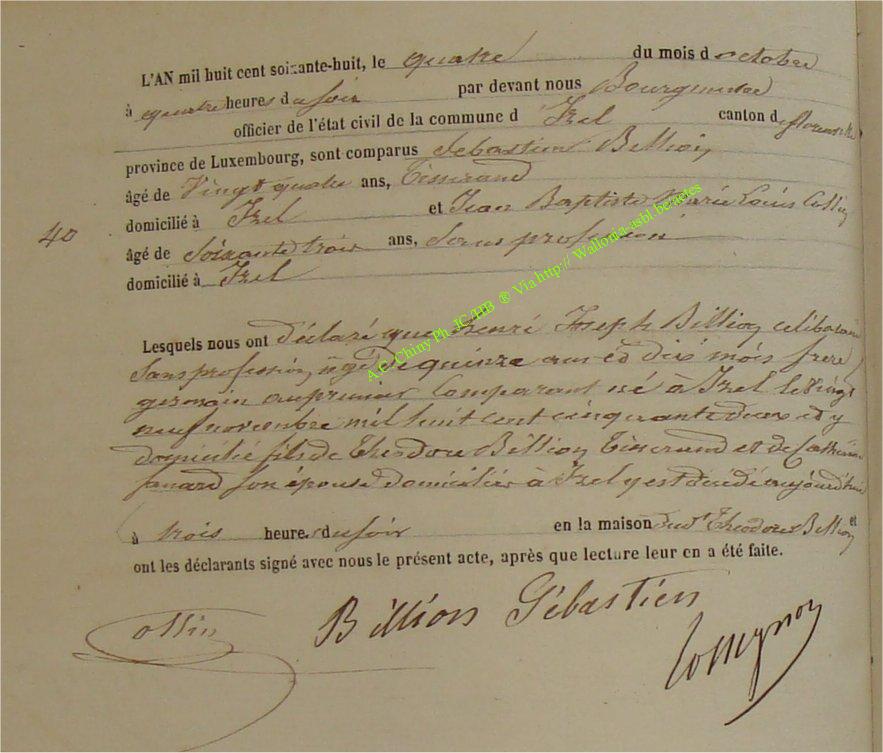 L'AN mil huit cent soixante-huit, le quatre du mois d octobre
à quatre heures du soir par devant nous Bourgmestre
officier de l'état civil de la commune d Izel canton de florenville
province de Luxembourg, sont comparus Sebastien Billion
âgé de Vingt quatre ans, Tisserand
domicilié à Izel et Jean Baptiste Marie Louis
40
âgé de Soixante trois ans, Sans profession
domicilié à Izel
Lesquels nous ont déclaré que Henri Joseph Billion celibataire
Sans profession agé de quinze ans et dix mois frere
germain au premier Comparant né à Izel le Vingt
neuf novembre mil huit cent cinquante deux et y
domicilié fils de Theodore Billion Tisserand et de Catherine
fanard son épouse domiciliés à Izel y est décédé aujourd'hui
à trois heures du soir en la maison dud.t Théodore Billion et
ont les déclarants signé avec nous le présent acte, après que lecture leur en a été faite.
Billion Sébastien
A.C. Chiny Ph JC/HB ® Via http:// Wallonia-asbl.be/actes